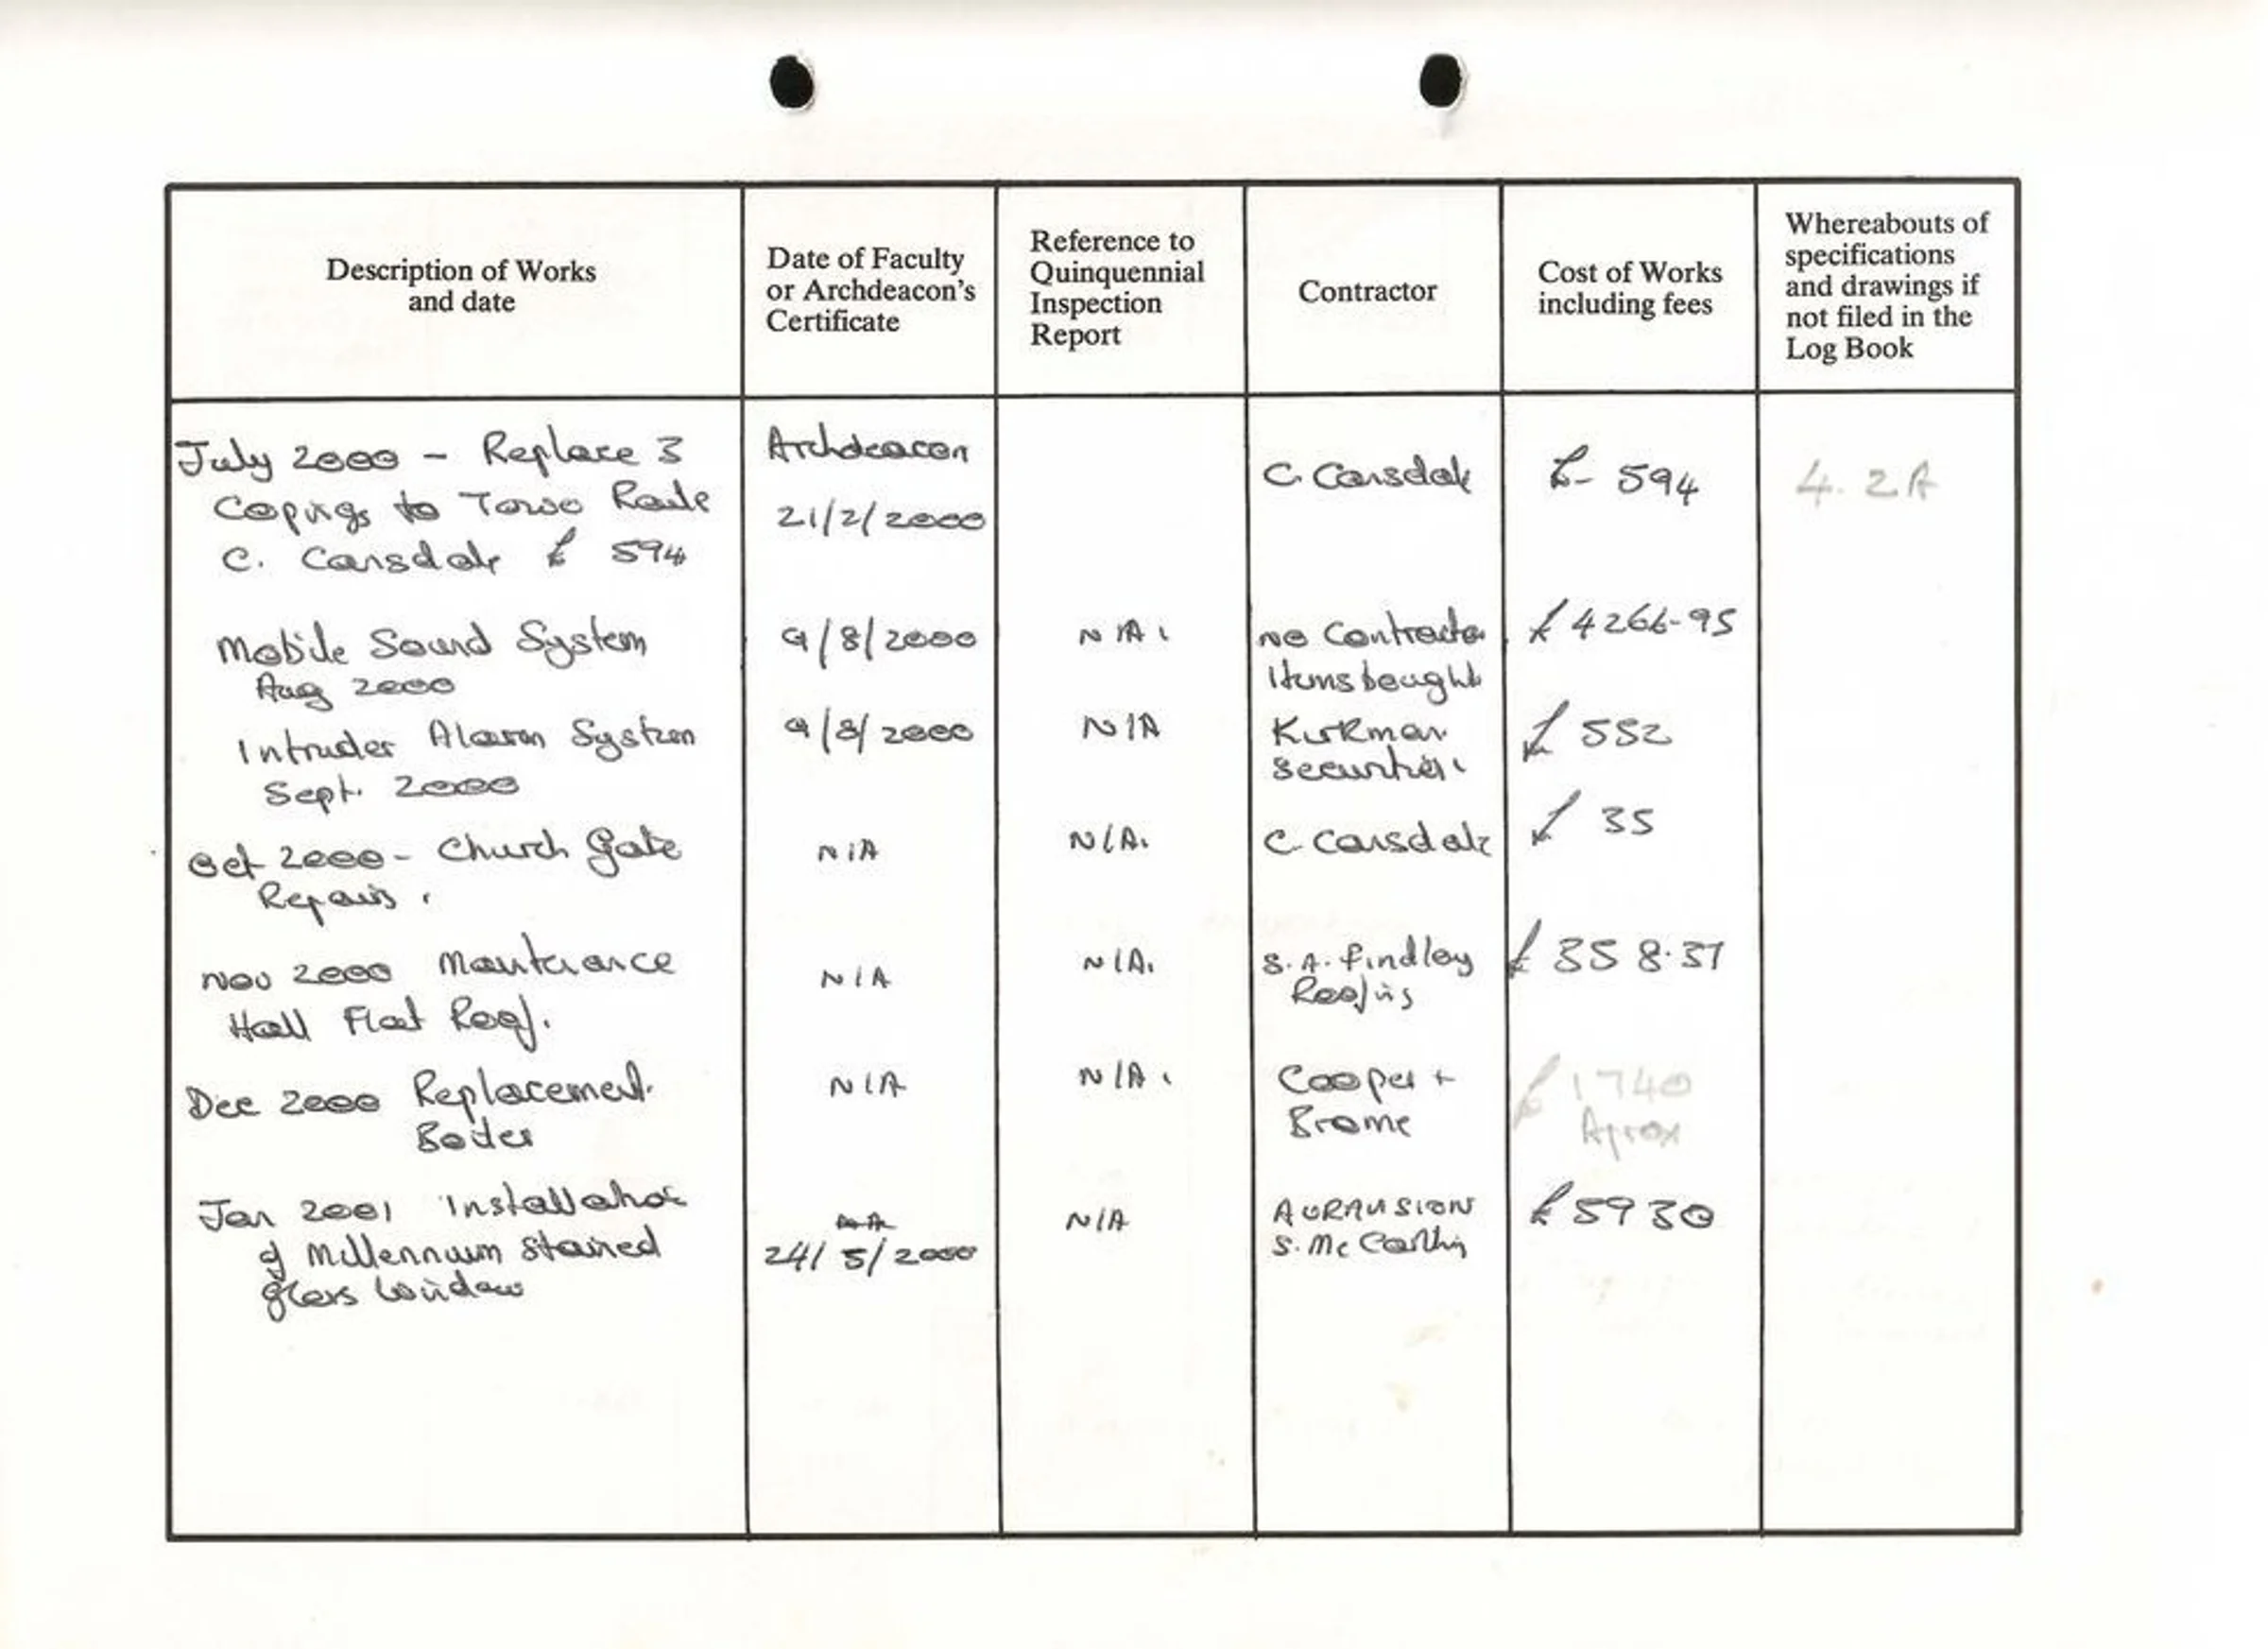 Description of Works
and date
Date of Faculty
or Archdeacon's
Certificate
Reference to
Quinquennial
Inspection
Report
Contractor
Cost of Works
including fees
Whereabouts of
specifications
and drawings if
not filed in the
Log Book
July 2000 - Replace 3
Copings to Tower
C. Carsdale £ 594
Archdeacon
21/2/2000
C. Carsdale
£- 594
4. 2A
Mobile Sound System
Aug 2000
9/8/2000
N/A.
No Contractor
Items bought
£4266-95
Intruder Alarm System
Sept. 2000
9/8/2000
N/A
Kirkman
Securities.
£ 552
Oct 2000 - Church Gate
Repairs.
N/A
N/A.
C. Carsdale
£ 35
Nov 2000 Maintenance
Hall Flat Roof.
N/A
N/A.
S. A. Findley
Roofing
£ 358.37
Dec 2000 Replacement
Boiler
N/A
N/A.
Cooper +
Brome
£ 1740
Aprox
Jan 2001 Installation
of Millennium Stained
glass Window
24/5/2000
N/A
S. Mc Carthy
£5930